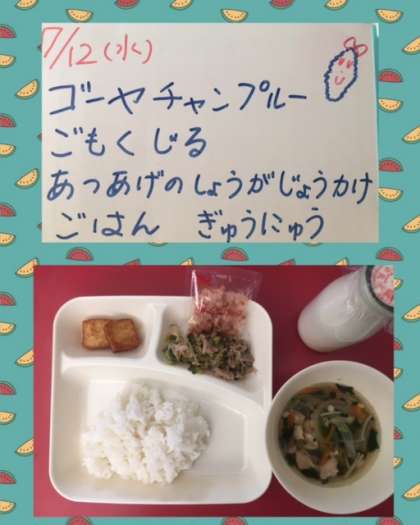 7/12(水)
ゴーヤチャンプルー
ごもくじる
あつあげのしょうがじょうかけ
ごはん ぎゅうにゅう